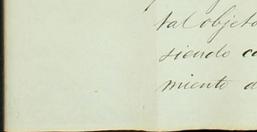 tal objeto
siendo co
miento d